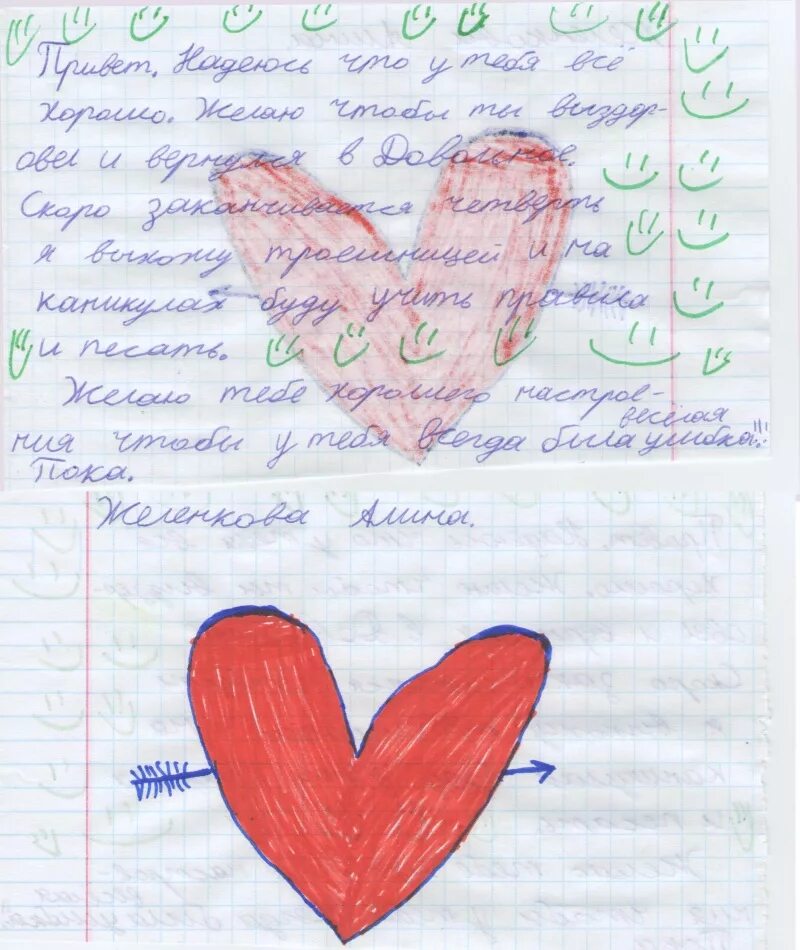 Привет. Надеюсь что у тебя всё
хорошо. Желаю чтобы ты выздор-
овел и вернулся в Довольное.
Скоро заканчивается четверть
я выхожу троешницей и на
каникулах буду учить правила
и песать.
Желаю тебе хорошего настрое-
ния чтобы у тебя всегда была весёлая улибка!!
Пока.
Желенкова Алина.